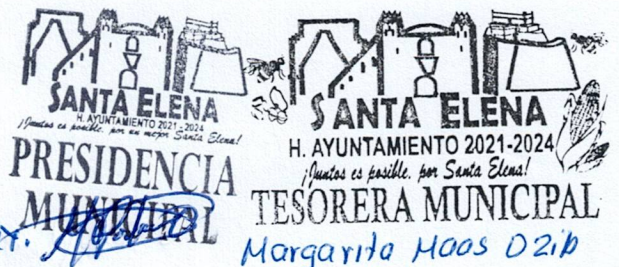 SANTA ELENA
H. AYUNTAMIENTO 2021-2024
¡Juntos es posible, por un mejor Santa Elena!
PRESIDENCIA
MUNICIPAL
SANTA ELENA
H. AYUNTAMIENTO 2021-2024
¡Juntos es posible, por Santa Elena!
TESORERA MUNICIPAL
Margarita Maas Dzib